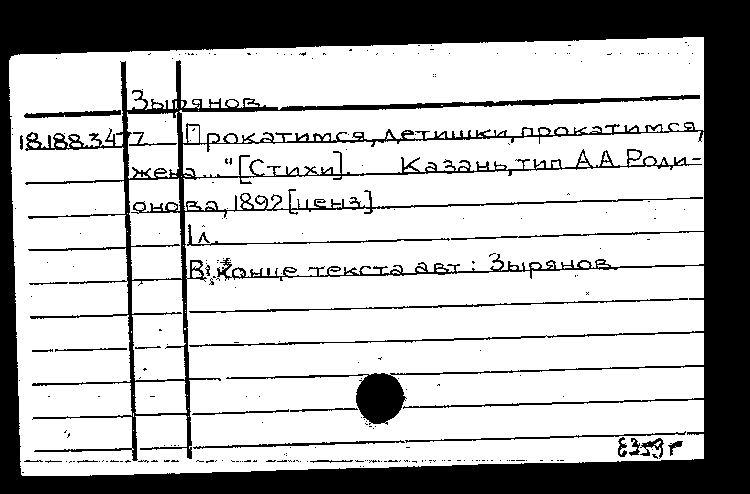 Зырянов.
18.188.3.477 Прокатимся, детишки, прокатимся,
жена..." [Стихи]. Казань, тип А.А. Роди-
онова, 1892 [ценз]
1 л.
В конце текста авт: Зырянов.